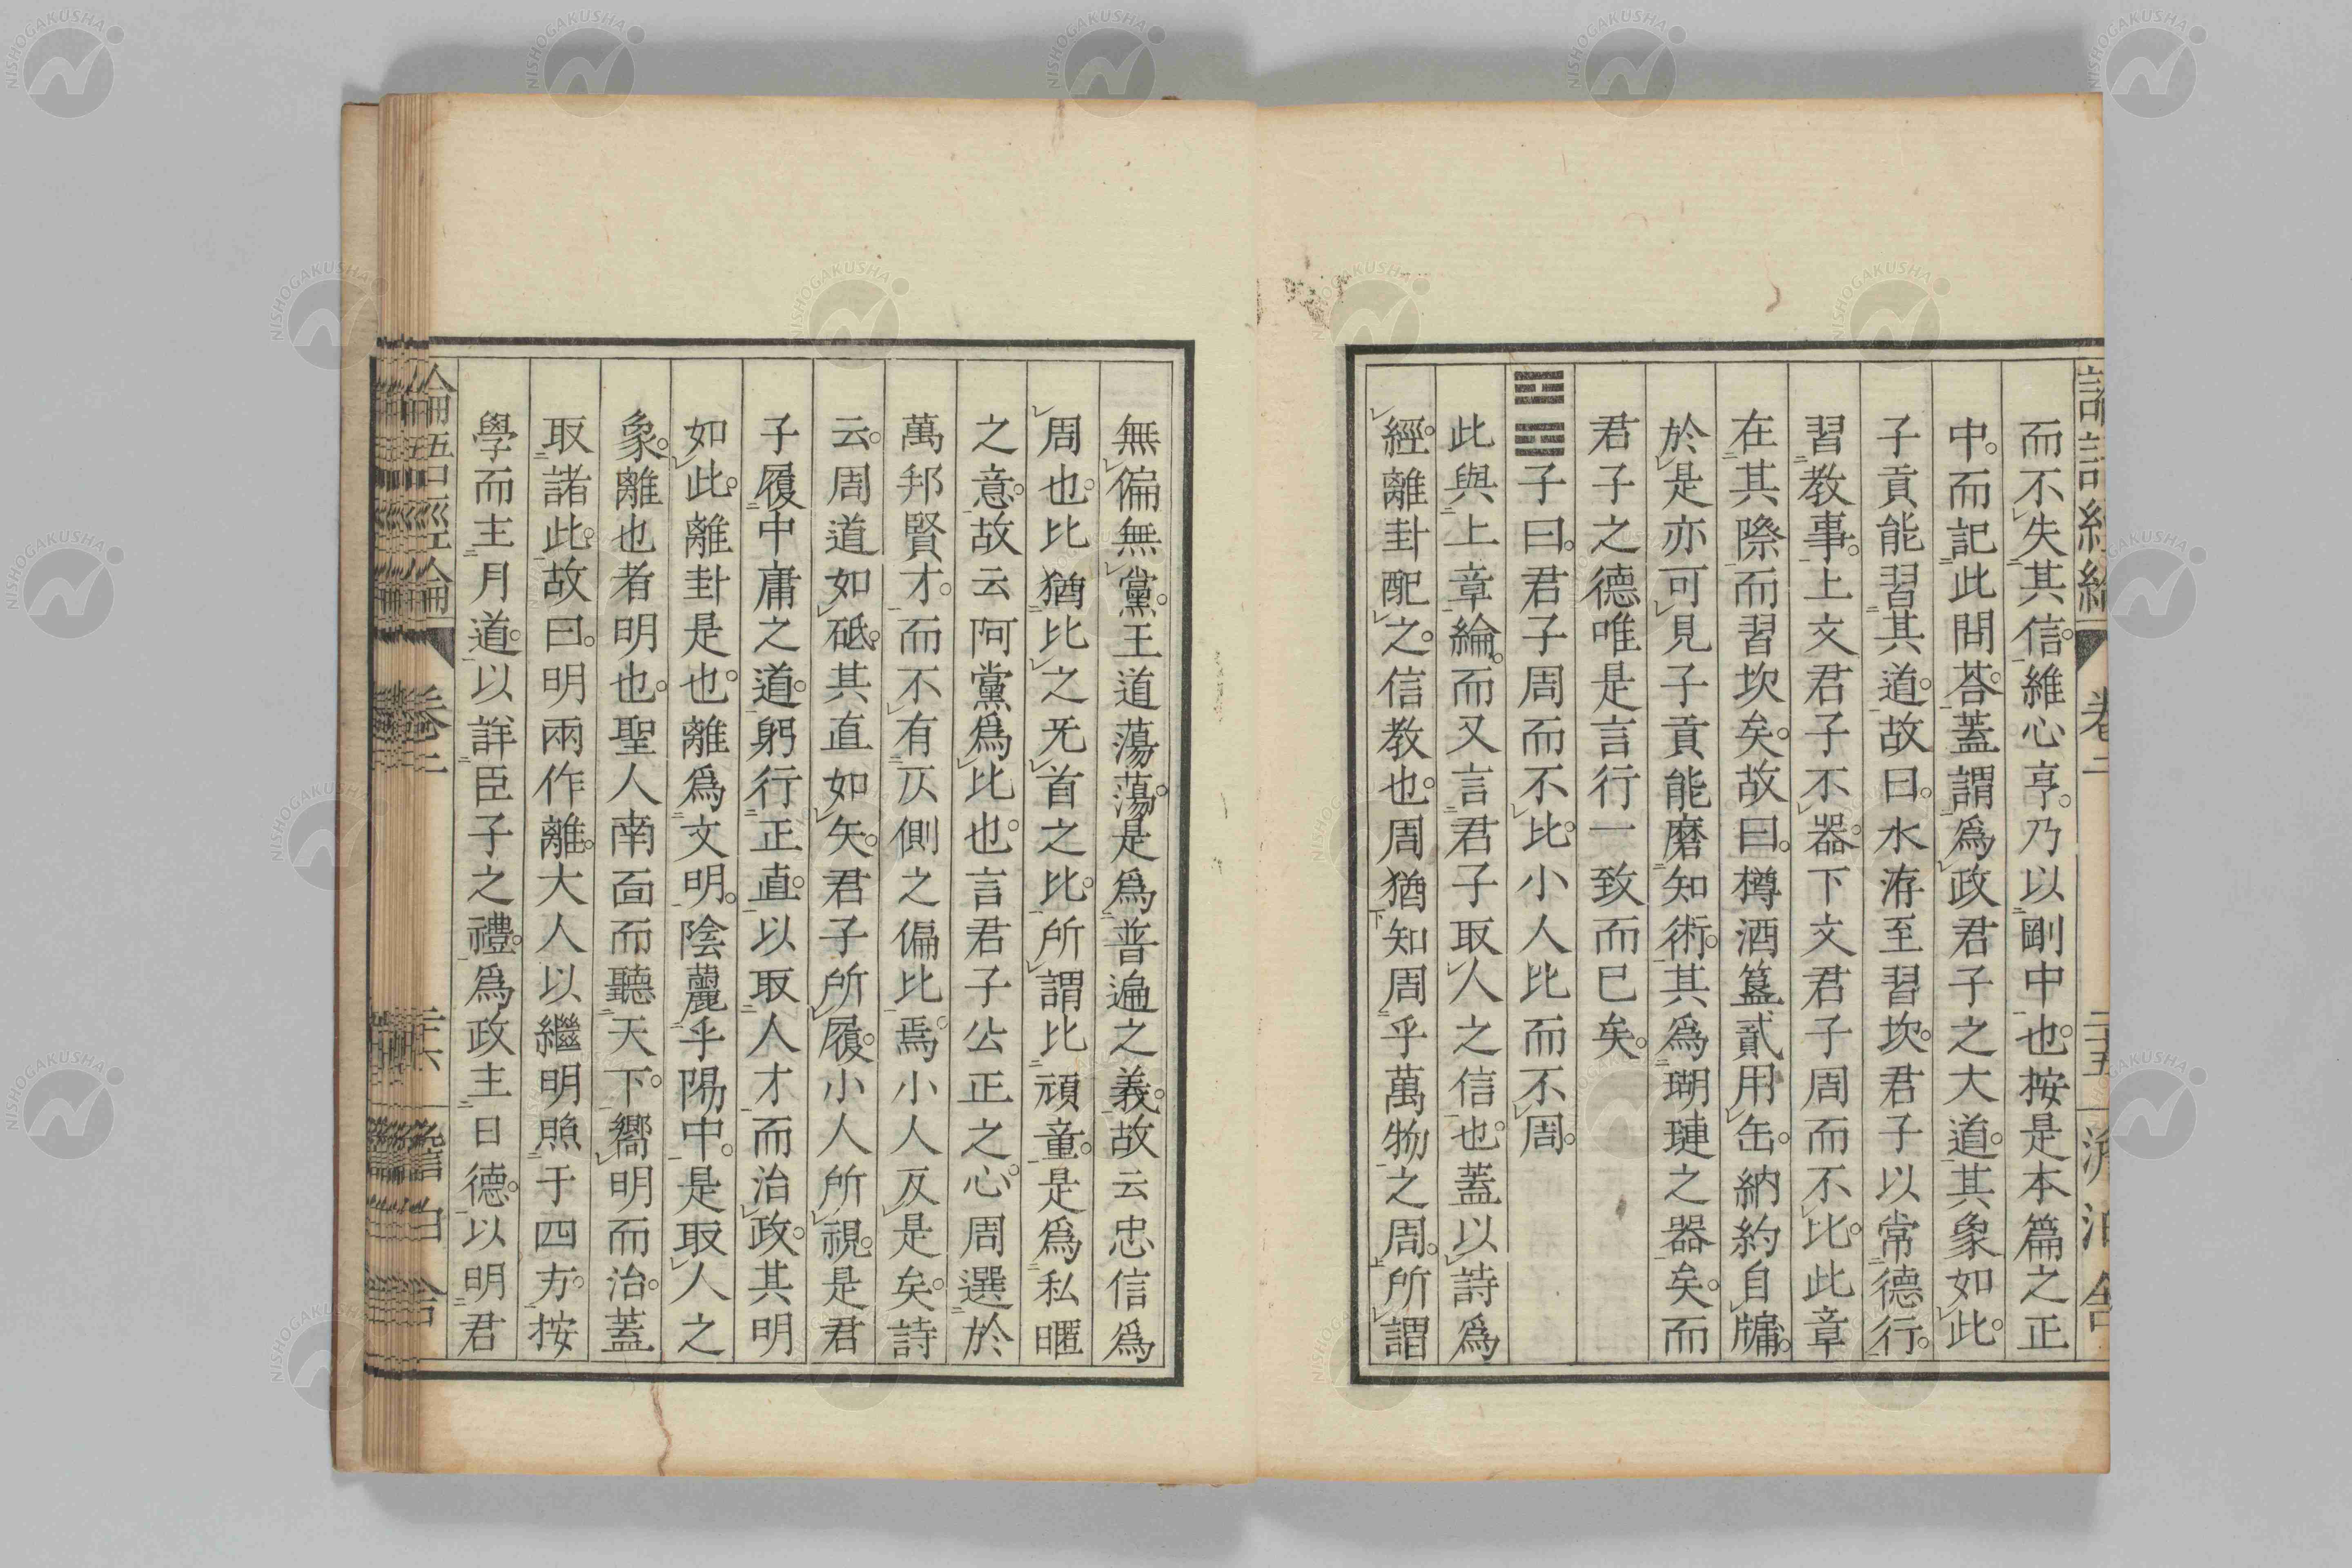 論語經綸 卷二 二十五
而不失其信維心亨。乃以剛中也。按是本篇之正
中。而記此問荅。蓋謂爲政君子之大道。其象如此。
子貢能習其道。故曰。水洊至習坎。君子以常德行。
習教事。上文君子不器。下文君子周而不比。此章
在其際而習坎矣。故曰。樽酒簋貳用缶。納約自牖。
於是亦可見子貢能磨知術。其爲瑚璉之器矣。而
君子之德唯是言行一致而巳矣。
子曰。君子周而不比。小人比而不周。
此與上章綸。而又言君子取人之信也。蓋以詩爲
經。離卦配之。信教也。周猶知周乎萬物之周。所謂
無偏無黨。王道蕩蕩。是爲普遍之義。故云忠信爲
周也。比猶比之无首之比。所謂比頑童。是爲私暱
之意。故云阿黨爲比也。言君子公正之心。周選於
萬邦賢才。而不有仄側之偏比焉。小人反是矣。詩
云。周道如砥。其直如矢。君子所履。小人所視。是君
子履中庸之道。躬行正直。以取人才而治政。其明
如此。離卦是也。離爲文明。陰麗乎陽中。是取人之
象。離也者明也。聖人南面而聽天下。嚮明而治。蓋
取諸此。故曰。明兩作離。大人以繼明照于四方。按
學而主月道。以詳臣子之禮。爲政主日德。以明君
論語經綸 卷二 二十六